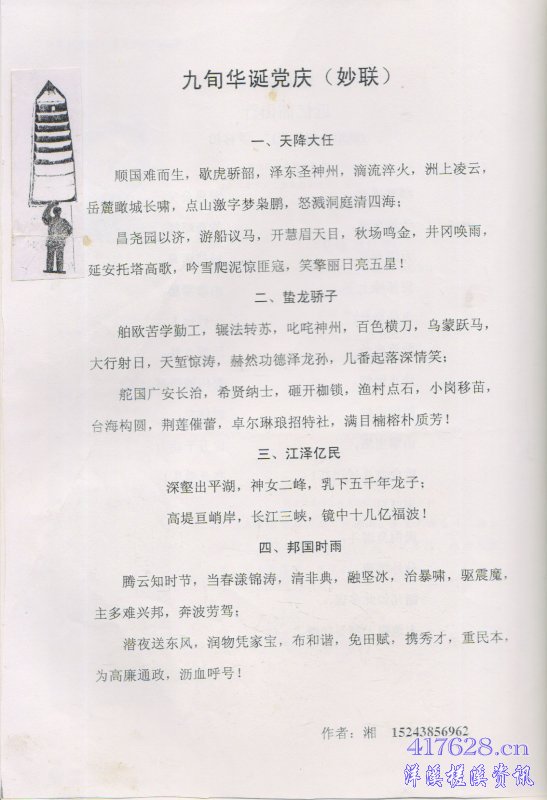 九旬华诞党庆（妙联）
一、天降大任
顺国难而生，歇虎骄韶，泽东圣神州，滴流淬火，洲上凌云，
岳麓瞰城长啸，点山激字梦枭鹏，怒溅洞庭清四海；
昌尧园以济，游船议马，开慧眉天目，秋场鸣金，井冈唤雨，
延安托塔高歌，吟雪爬泥惊匪寇，笑擎丽日亮五星！
二、蛰龙骄子
舶欧苦学勤工，辗法转苏，叱咤神州，百色横刀，乌蒙跃马，
大行射日，天堑惊涛，赫然功德泽龙孙，几番起落深情笑；
舵国广安长治，希贤纳士，砸开枷锁，渔村点石，小岗移苗，
台海构圆，荆莲催蕾，卓尔琳琅招特社，满目楠榕朴质芳！
三、江泽亿民
深壑出平湖，神女二峰，乳下五千年龙子；
高堤亘峭岸，长江三峡，镜中十几亿福波！
四、邦国时雨
腾云知时节，当春漾锦涛，清非典，融坚冰，治暴啸，驱震魔，
主多难兴邦，奔波劳驾；
潜夜送东风，润物凭家宝，布和谐，免田赋，携秀才，重民本，
为高廉通政，沥血呼号！
作者：湘 15243856962
417628.cn
洋溪槎溪资讯